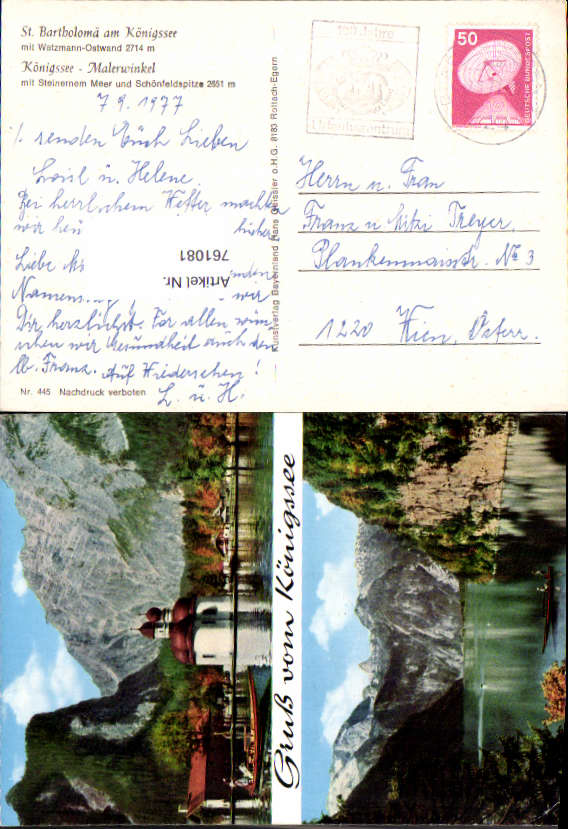 St. Bartholomä am Königssee
mit Watzmann-Ostwand 2714 m
Königssee - Malerwinkel
mit Steinernem Meer und Schönfeldspitze 2651 m
7 9. 1977
senden Euch Lieben
Loisl u. Helene.
Bei herrlichem Wetter machten
wir heu
Liebe
Namens
wir
Dir herzlichst. Vor allem wün
schen wir Gesundheit auch dem
lb. Franz. Auf Wiedersehen!
L. u. H.
Nr. 445 Nachdruck verboten
Artikel Nr.
761081
Kunstverlag Bayernland Hans Geissler o.H.G. 8183 Rottach-Egern
100 Jahre
50
DEUTSCHE BUNDESPOST
Herrn u. Frau
Franz u Mitzi Treyer
Plankenmaistr. No 3
1220 Wien, Österr.
Gruß vom Königssee